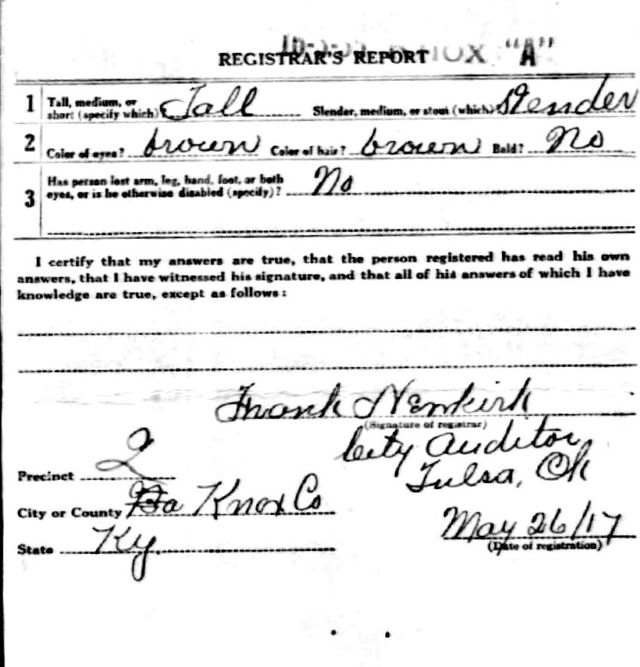 REGISTRAR'S REPORT "A"
1 Tall, medium, or short (specify which)? Tall Slender, medium, or stout (which)? Slender
2 Color of eyes? brown Color of hair? brown Bald? No
3 Has person lost arm, leg, hand, foot, or both
eyes, or is he otherwise disabled (specify)? No
I certify that my answers are true, that the person registered has read his own
answers, that I have witnessed his signature, and that all of his answers of which I have
knowledge are true, except as follows:
Frank Newkirk
(Signature of registrar)
City Auditor
Tulsa, Ok
Precinct 2
City or County Knox Co
State Ky.
May 26/17
(Date of registration)